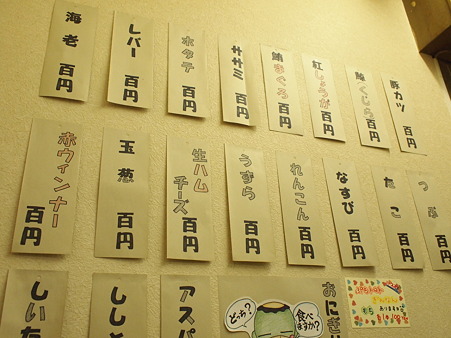 海老 百円
レバー 百円
ホタテ 百円
ササミ 百円
鮪まぐろ 百円
紅しょうが 百円
鯨くじら 百円
豚カツ 百円
赤ウィンナー 百円
玉葱 百円
生ハムチーズ 百円
うずら 百円
れんこん 百円
なすび 百円
たこ 百円
つぶ 百円
しいた
しし
アスパ
おにぎり
どっち?
食べますか?